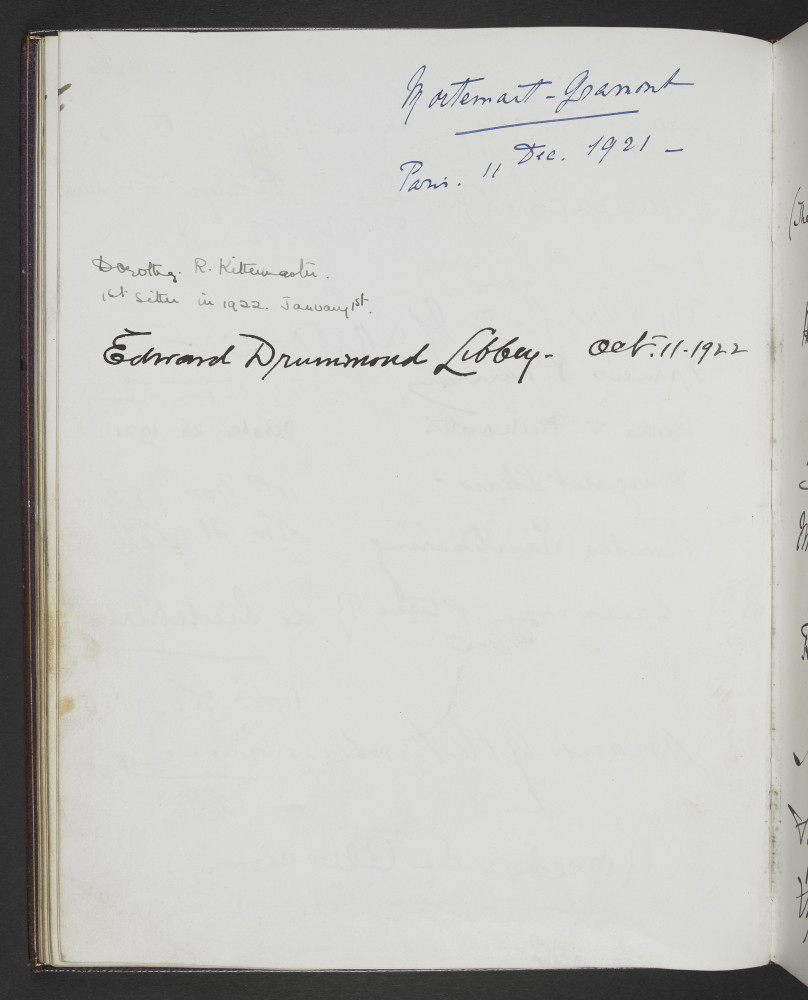 Mortemart - Gramont
Paris. 11 Dec. 1921 -
Dorothy. R. Kittermaster.
1st Sitter in 1922. January 1st.
Edward Drummond Libbey - Oct. 11 - 1922
(The